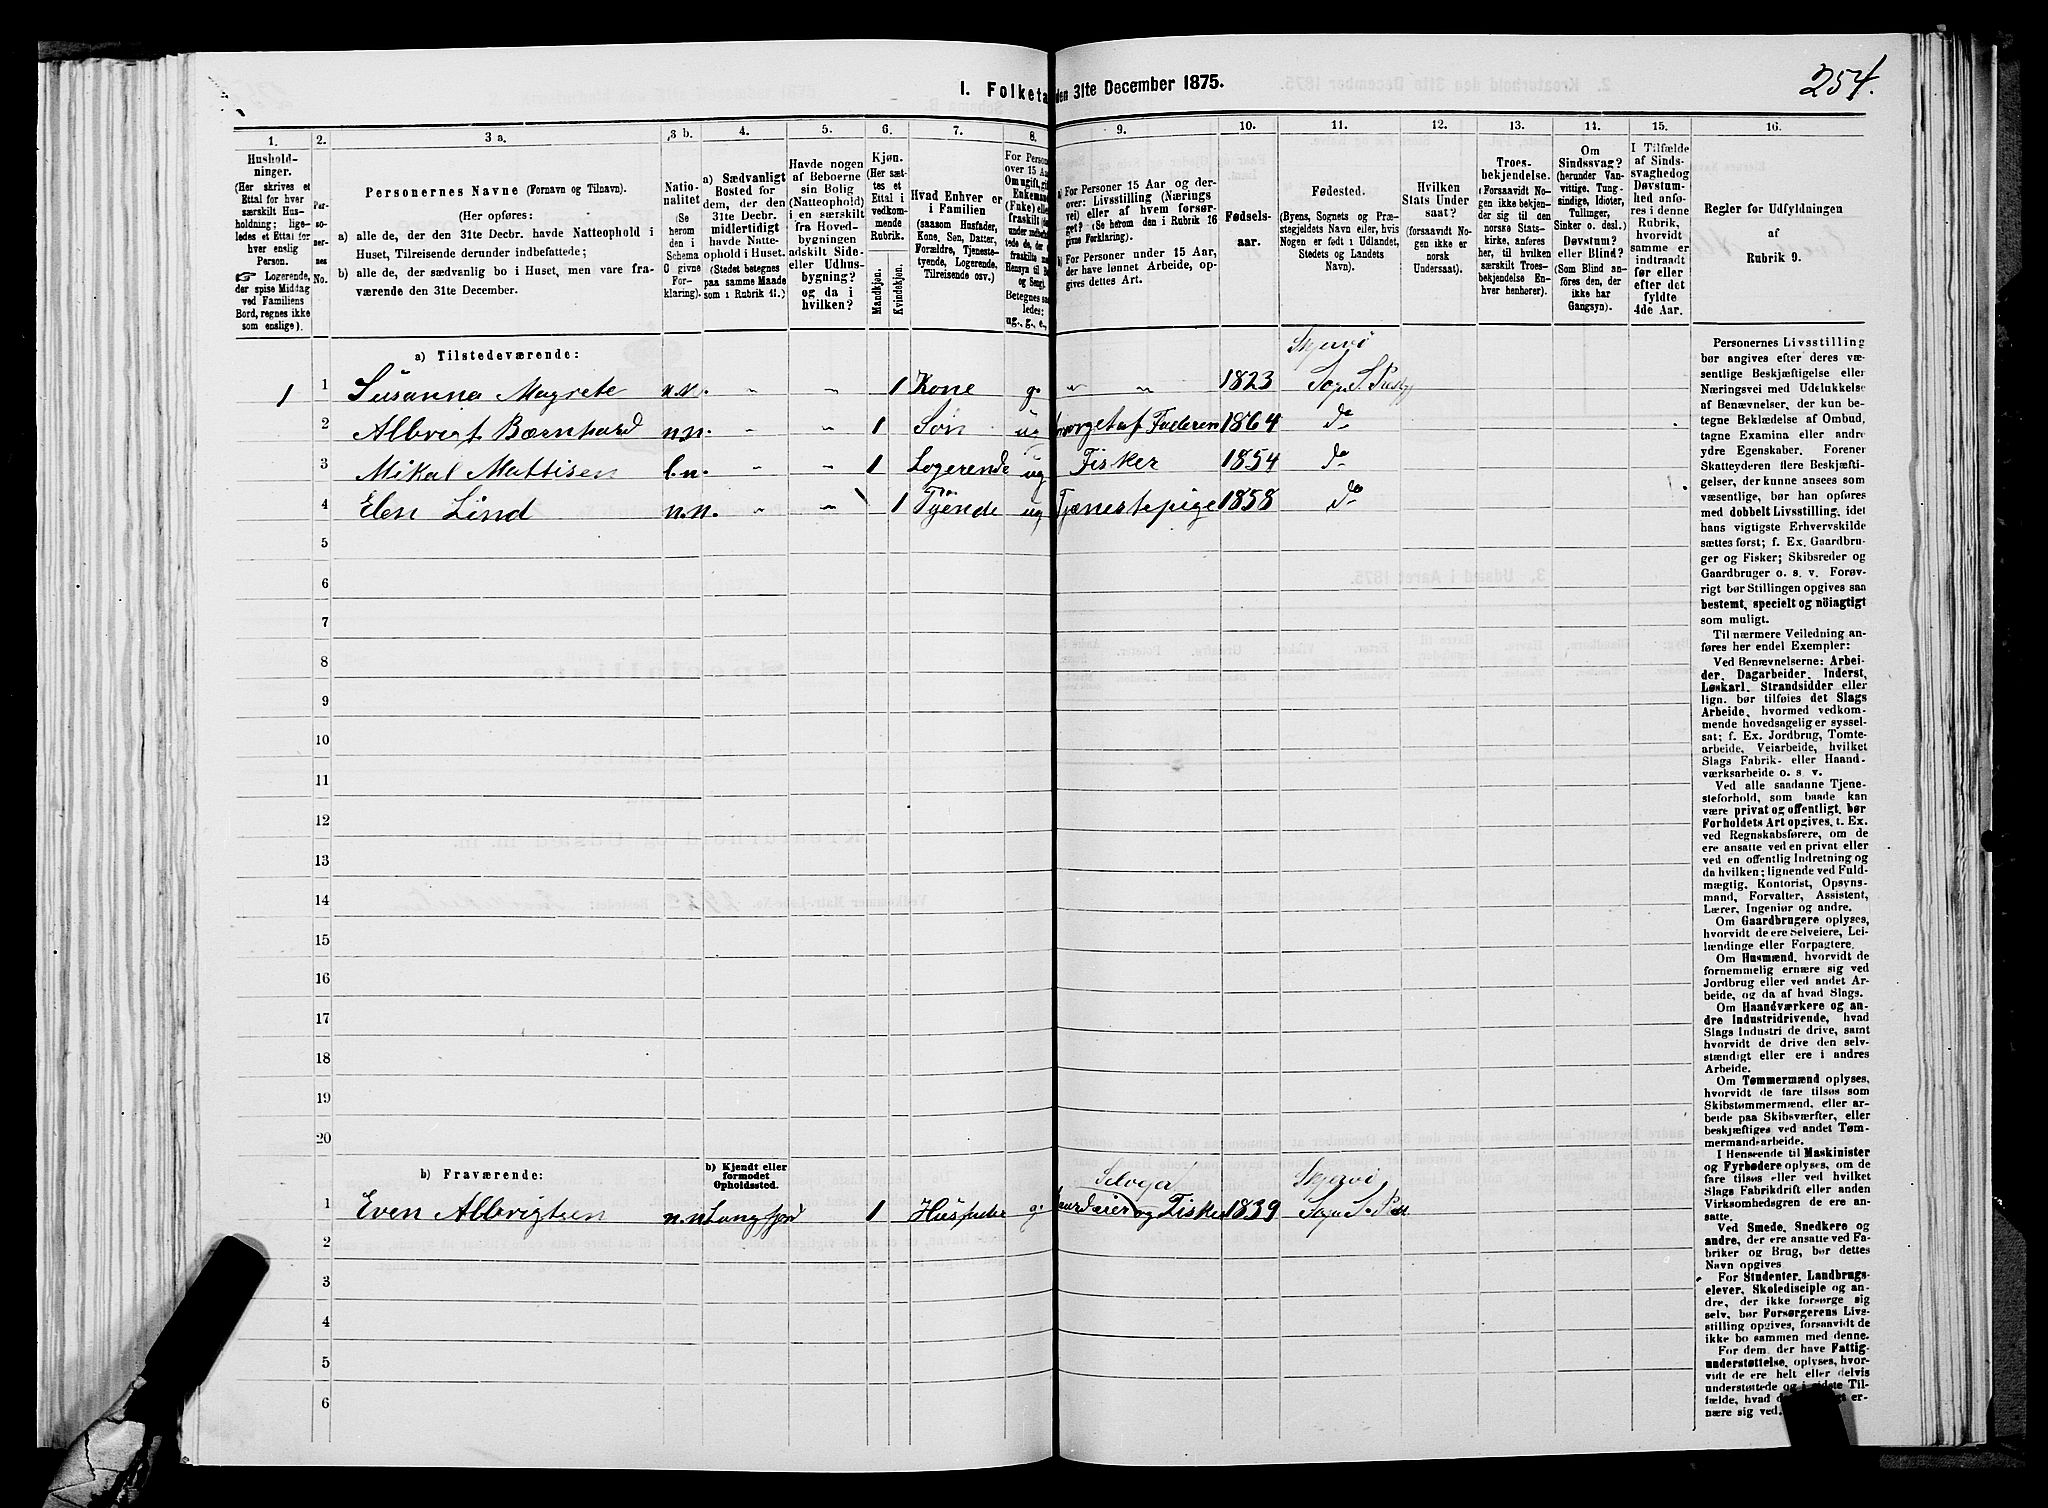 I. Folketæ den 31te December 1875.
254.
1.
Hushold-
ninger.
(Her skrives et
Ettal for hver
særskilt Hus-
holdning; lige-
ledes et Ettal for
hver enslig
Person.
☞ Logerende,
der spise Middag
ved Familiens
Bord, regnes ikke
som enslige).
2.
Per-
so-
ner-
nes
No.
3 a.
Personernes Navne (Fornavn og Tilnavn).
(Her opføres:
a) alle de, der den 31te Decbr. havde Natteophold i
Huset, Tilreisende derunder indbefattede;
b) alle de, der sædvanlig bo i Huset, men vare fra-
værende den 31te December.
3 b.
Natio-
nalitet
(Se
herom
den i
Schema
O givne
For-
klaring).
4.
a) Sædvanligt
Bosted for
dem, der den
31te Decbr.
midlertidigt
havde Natte-
ophold i Huset.
(Stedet betegnes
paa samme Maade
som i Rubrik 11.)
5.
Havde nogen
af Beboerne
sin Bolig
(Natteophold)
i en særskilt
fra Hoved-
bygningen
adskilt Side-
eller Udhus-
bygning?
og da i
hvilken?
6.
Kjøn.
(Her sæt-
tes et
Ettal i
vedkom-
mende
Rubrik.
Mandkjøn.
Kvindekjøn.
7.
Hvad Enhver er
i Familien
(saasom Husfader,
Kone, Søn, Datter,
Forældre, Tjeneste-
tyende, Logerende,
Tilreisende osv.)
8.
For Person
over 15 Aar
Om ugift, gif
Enkeman
(Fuke) elle
fraskilt
Betegnes saa
ledes:
ug., g., e.,
9.
a) For Personer 15 Aar og der-
over: Livsstilling (Nærings
vei) eller af hvem forsør-
get? (Se herom den i Rubrik 16
givne Forklaring).
b) For Personer under 15 Aar,
der have lønnet Arbeide, op-
gives dettes Art.
10.
Fødsels-
aar.
11.
Fødested.
(Byens, Sognets og Præ-
stegjeldets Navn eller, hvis
Nogen er født i Udlandet,
Stedets og Landets
Navn).
12.
Hvilken
Stats Under
saat?
(forsaavidt No-
gen ikke er
norsk
Undersaat).
13.
Troes-
bekjendelse.
(Forsaavidt No-
gen ikke bekjen-
der sig til den
norske Stats-
kirke, anføres
her, til hvilken
særskilt Troes-
bekjendelse En-
hver henhører).
14.
Om
Sindssvag?
(herunder Van-
vittige, Tung-
sindige, Idioter,
Tullinger,
Sinker o. desl.)
Døvstum?
eller Blind?
(Som Blind an-
føres den, der
ikke har
Gangsyn).
15.
I Tilfælde
af Sinds-
svaghed og
Døvstum-
hed anfø-
res i denne
Rubrik,
hvorvidt
samme er
indtraadt
før eller
efter det
fyldte
4de Aar.
16.
Regler for Udfyldningen
af
Rubrik 9.
a) Tilstedeværende:
Skjervö
1 1 Susanna Magrete n.n. „ „ 1 Kone g. „ „ 1823
2 Albrigt Bærnhard n.n. „ „ 1 Søn ug orget af Faderen 1864 do
3 Mikal Mattisen l.n. „ „ 1 Logerende ug Fisker 1854 do
4 Elen Lind n.n. „ „ 1 Tyende ug Tjænestepige 1858 do
5
6
7
8
9
10
11
12
13
14
15
16
17
18
19
20
b) Fraværende:
b) Kjendt eller
formodet
Opholdssted.
Skjervö
1 Even Albrigtsen n.n Langfjord 1 Husfader g. og Fisker 1839
2
3
4
5
6
Personernes Livsstilling
bør angives efter deres væ-
sentlige Beskjæftigelse eller
Næringsvei med Udelukkelse
af Benævnelser, der kun be-
tegne Beklædelse af Ombud,
tagne Examina eller andre
ydre Egenskaber. Forener
Skatteyderen flere Beskjæfti-
gelser, der kunne ansees som
væsentlige, bør han opføres
med dobbelt Livsstilling, idet
hans vigtigste Erhvervskilde
sættes først; f. Ex. Gaardbru-
ger og Fisker; Skibsreder og
Gaardbruger o. s. v. Forøv-
rigt bør Stillingen opgives saa
bestemt, specielt og nöiagtigt
som muligt.
Til nærmere Veiledning an-
føres her endel Exempler:
Ved Benævnelserne: Arbei-
der, Dagarbeider, Inderst,
Løskarl, Strandsidder eller
lign. bør tilføies det Slags
Arbeide, hvormed vedkom-
mende hovedsagelig er syssel-
sat; f. Ex. Jordbrug, Tomte-
arbeide, Veiarbeide, hvilket
Slags Fabrik- eller Haand-
værksarbeide o. s. v.
Ved alle saadanne Tjene-
steforhold, som baade kan
være privat og offentligt, bør
Forholdets Art opgives, t. Ex.
ved Regnskabsførere, om de
ere ansatte ved en privat eller
ved en offentlig Indretning og
da hvilken; lignende ved Fuld-
mægtig, Kontorist, Opsyns-
mand, Forvalter, Assistent,
Lærer, Ingeniør og andre.
Om Gaardbrugere oplyses,
hvorvidt de ere Selveiere, Lei-
lændinge eller Forpagtere.
Om Husmænd, hvorvidt de
fornemmelig ernære sig ved
Jordbrug eller ved andet Ar-
beide, og da af hvad Slags.
Om Haandværkere og an-
dre Industridrivende, hvad
Slags Industri de drive, samt
hvorvidt de drive den selv-
stændigt eller ere i andres
Arbeide.
Om Tømmermænd oplyses,
hvorvidt de fare tilsøs som
Skibstømmermænd, eller ar-
beide paa Skibsværfter, eller
beskjæftiges ved andet Tøm-
mermand-arbeide.
I Henseende til Maskinister
og Fyrbødere oplyses, om de
fare tilsøs eller ved hvilket
Slags Fabrikdrift eller anden
Virksomhedsgren de ere an-
satte.
Ved Smede, Snedkere og
andre, der ere ansatte ved Fa-
briker og Brug, bør dettes
Navn opgives
For Studenter, Landbrugs-
elever, Skoledisciple og an-
dre, der ikke forsørge sig
selv, bør Forsørgerens Livs-
stilling opgives, forsaavidt de
ikke bo sammen med denne.
For dem, der have Fattig-
understøttelse, oplyses, hvor-
vidt de ere helt eller delvis
understøttede og i sidste Til-
fælde, hvad de er-
nære sig ved.